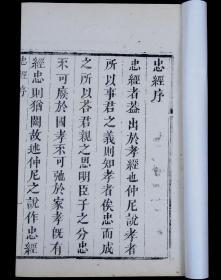 忠經序
忠經者蓋出於孝經也仲尼說孝者
所以事君之義則知孝者俟忠而成
之所以荅君親之恩明臣子之分忠
不可廢於國孝不可弛於家孝既有
經忠則猶闕故述仲尼之說作忠經
忠經序